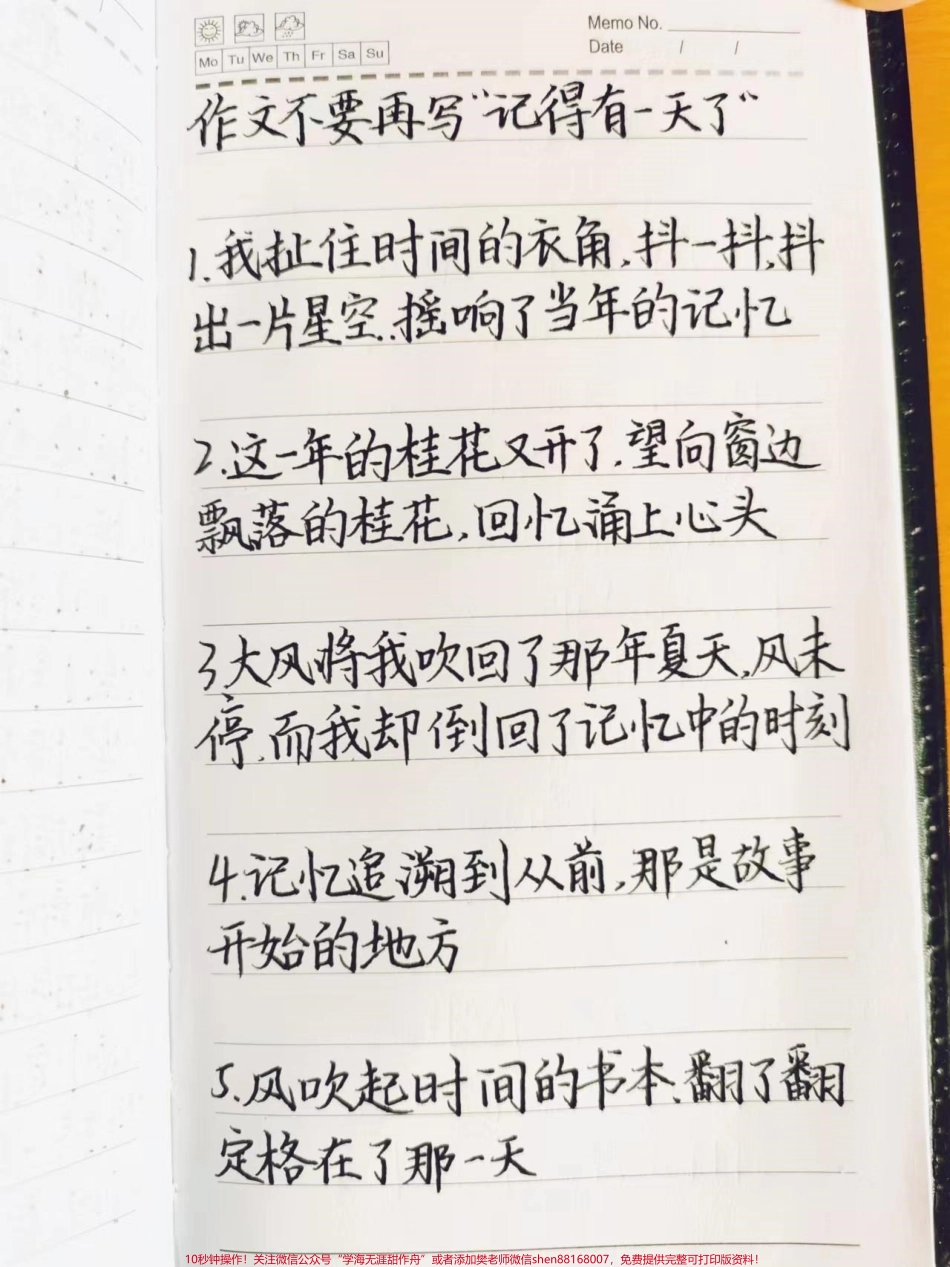 Memo No.
Mo Tu We Th Fr Sa Su
Date / /
作文不要再写“记得有一天了“
1.我扯住时间的衣角,抖一抖,抖
出一片星空.摇响了当年的记忆
2.这一年的桂花又开了.望向窗边
飘落的桂花,回忆涌上心头
3大风将我吹回了那年夏天,风未
停,而我却倒回了记忆中的时刻
4.记忆追溯到从前,那是故事
开始的地方
5.风吹起时间的书本,翻了翻
定格在了那一天
10秒钟操作!关注微信公众号“学海无涯甜作舟”或者添加樊老师微信shen88168007,免费提供完整可打印版资料!